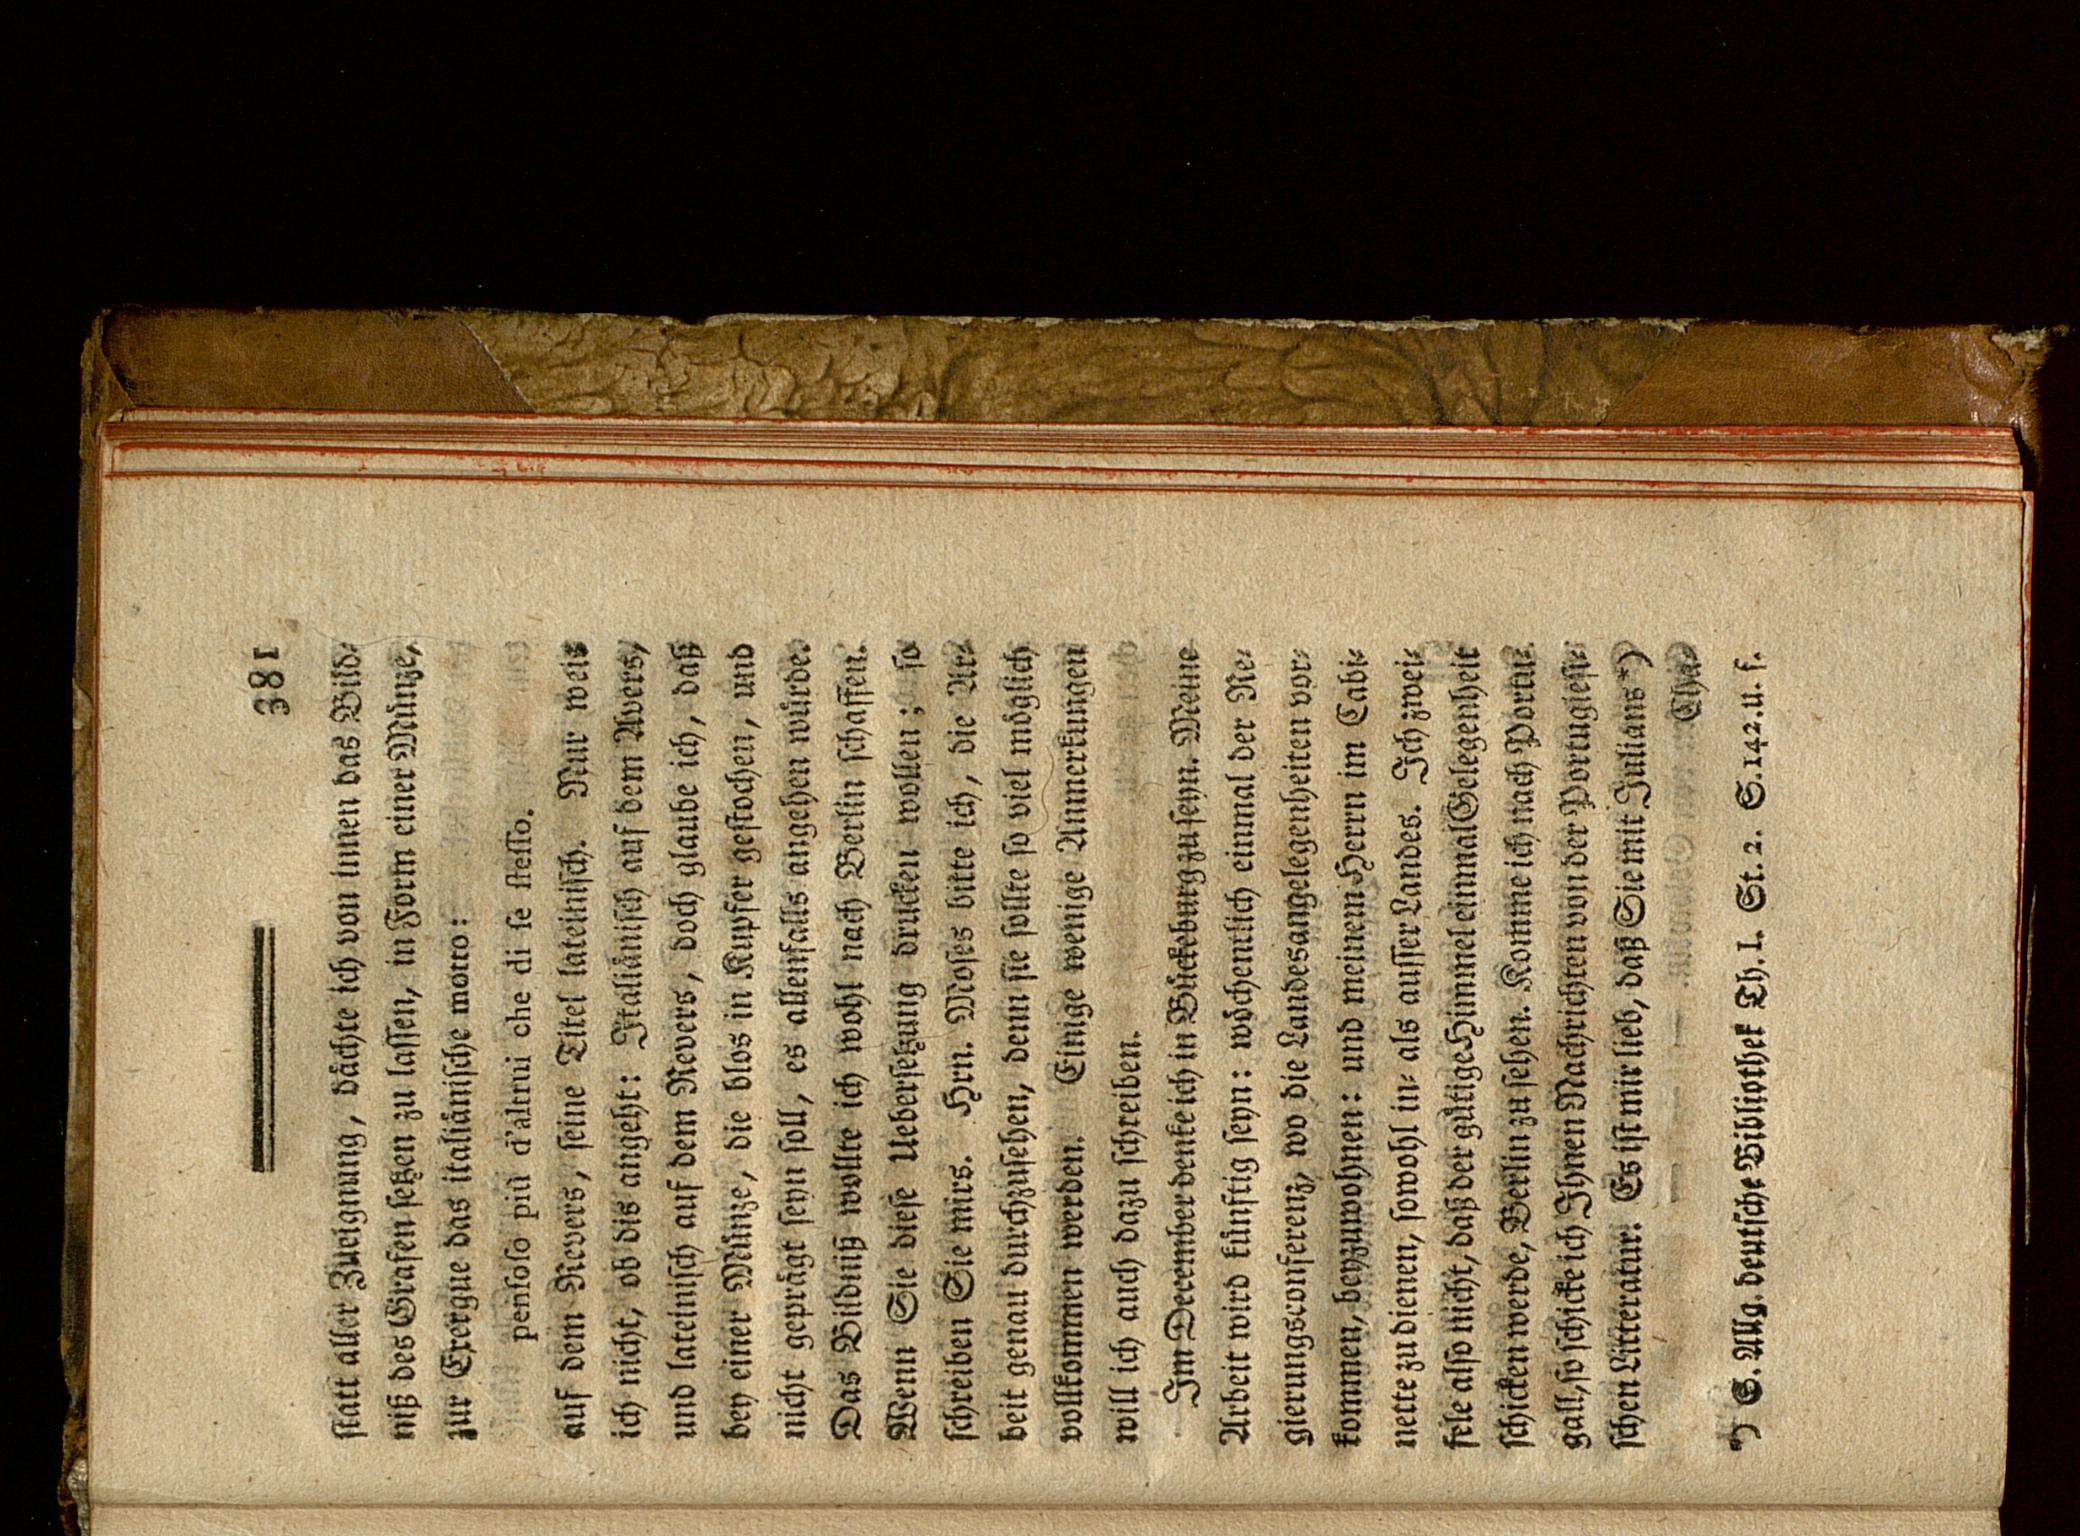 381
ſtatt aller Zueignung, dächte ich von innen das Bild-
niß des Grafen ſetzen zu laſſen, in Form einer Münze,
zur Exergue das italiäniſche motto:
penſoſo più d'altrui che di ſe ſteſſo.
auf dem Revers, ſeine Titel lateiniſch. Nur weis
ich nicht, ob dis angeht: Italiäniſch auf dem Avers,
und lateiniſch auf dem Revers, doch glaube ich, daß
bey einer Münze, die blos in Kupfer geſtochen, und
nicht geprägt ſeyn ſoll, es allenfalls angehen würde.
Das Bildniß wollte ich wohl nach Berlin ſchaffen.
Wenn Sie dieſe Ueberſetzung drucken wollen; ſo
ſchreiben Sie mirs. Hrn. Moſes bitte ich, die Ar-
beit genau durchzuſehen, denn ſie ſollte ſo viel möglich
vollkommen werden. Einige wenige Anmerkungen
will ich auch dazu ſchreiben.
Im December denke ich in Bückeburg zu ſeyn. Meine
Arbeit wird künftig ſeyn: wöchentlich einmal der Re-
gierungsconferenz, wo die Landesangelegenheiten vor-
kommen, beyzuwohnen: und meinem Herrn im Cabi-
nette zu dienen, ſowohl in- als auſſer Landes. Ich zwei-
fele alſo nicht, daß der gütige Himmel einmal Gelegenheit
ſchicken werde, Berlin zu ſehen. Komme ich nach Portu-
gall, ſo ſchicke ich Ihnen Nachrichten von der Portugieſi-
ſchen Litteratur. Es iſt mir lieb, daß Sie mit Julians *)
Cha-
*) S. Allg. deutſche Bibliothek Th. I. St. 2. S. 142. u. f.